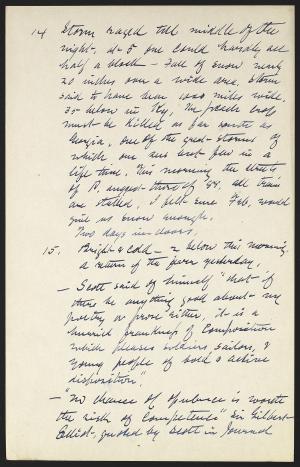 14 Storm raged till middle of the
night, at 5 one could hardly see
half a block - Fall of snow nearly
20 inches over a wide area. Storm
said to have been 1000 miles wide.
35° below in Ky, the peach crop
must be killed as far south as
Georgia, one of the great storms of
which one sees but few in a
life time. This morning the streets
of P. suggest those of '88, all trains
are stalled, I felt sure Feb. would
give us snow enough.
Two days in-doors.
15. Bright & cold - 2 below this morning,
a return of the fever yesterday,
- Scott said of himself "that if
there be anything good about my
poetry or prose either, it is a
hurried frankness of composition
which pleases soldiers sailors, &
young people of bold & active
disposition".
- "no chance of opulence is worth
the risk of competence" Sir Gilbert
Elliot, quoted by Scott in Journal